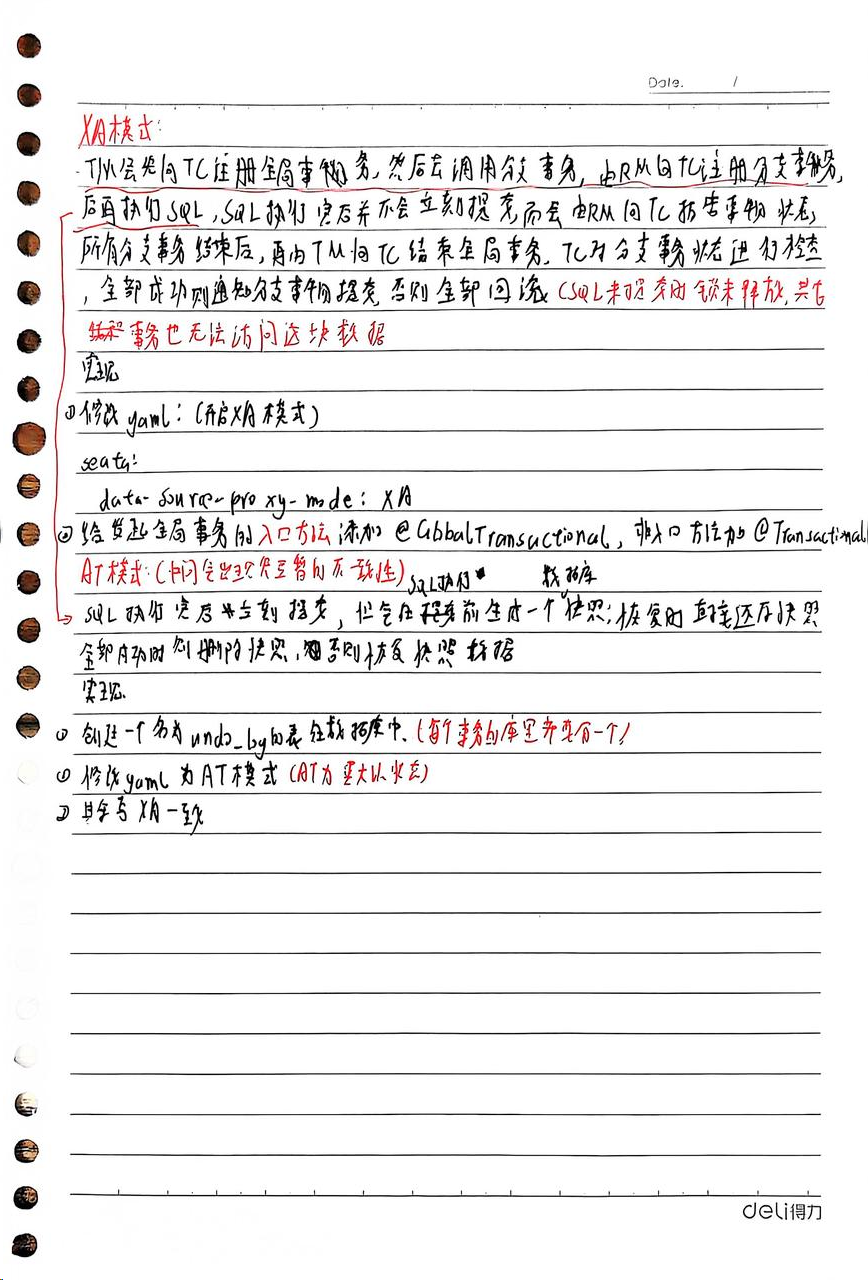 Date. /
XA模式:
TM会先向TC注册全局事物务,然后去调用分支事务,由RM向TC注册分支事务,
后再执行SQL,SQL执行完后并不会立刻提交,而会由RM向TC报告事物状态,
所有分支事务结束后,再由TM向TC结束全局事务,TC对分支事务状态进行检查
,全部成功则通知分支事物提交,否则全部回滚(SQL未提交时锁未释放,其它
事务也无法访问这块数据
实现
①修改yaml:(开启XA模式)
seata:
data-source-proxy-mode: XA
②给发起全局事务的入口方法添加@GlobalTransactional,非入口方法加@Transactional
AT模式:(中间会出现短暂的不一致性)
SQL执行 数据库
SQL执行完后立刻提交,但会在前生成一个快照;恢复时直接还原快照
全部成功时则删除快照,否则恢复快照数据
实现
①创建一个名为undo_log的表在数据库中.(每个事务的库里都要有一个)
②修改yaml为AT模式(AT为默认状态)
③其余与XA一致
deli得力